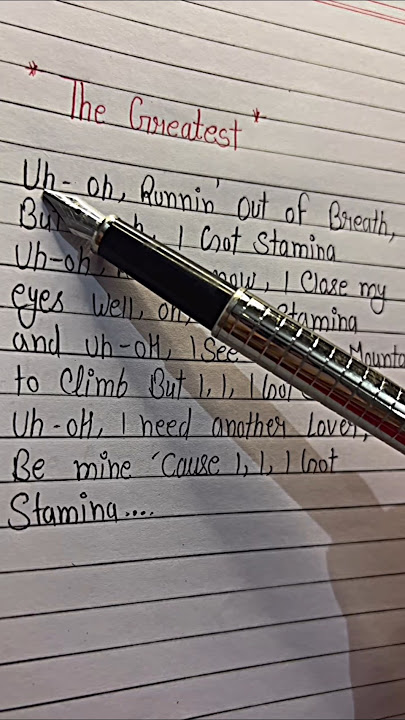 * The Greatest *
Uh-oh, Runnin' Out of Breath,
But I Got Stamina
Uh-oh, now, I Close my
eyes Well, oh, Stamina
and uh-oH, I See Mounta
to Climb But I, I, I Got
Uh-oH, I need another Lover,
Be mine 'Cause I, I, I Got
Stamina....